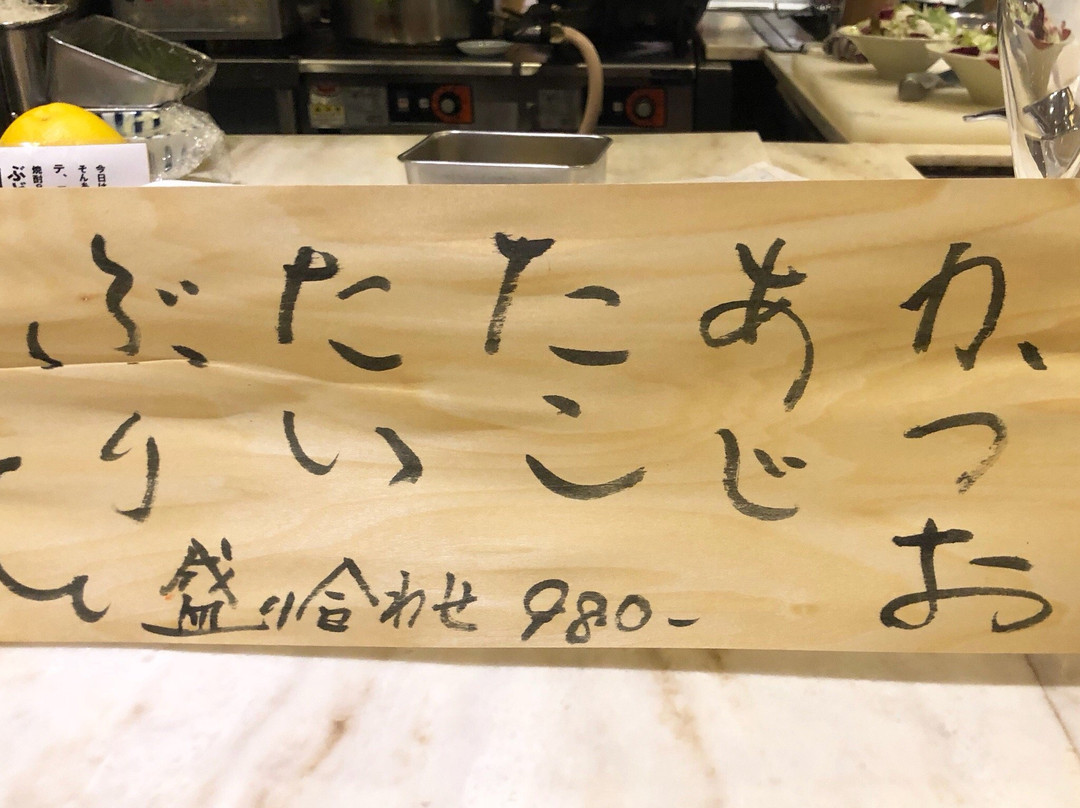 かつお
あじ
たこ
たい
ぶり
盛り合わせ 980-
今日は
そんあ
テ、
焼酎
ぶ